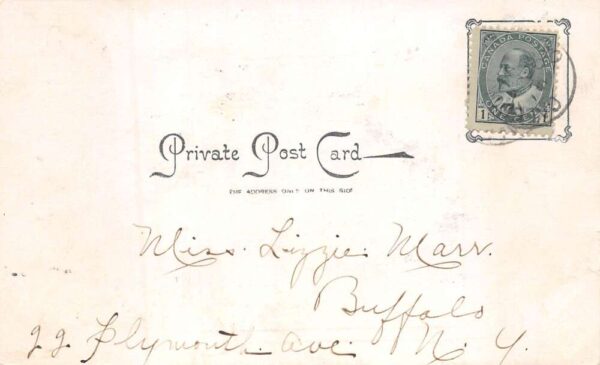 CANADA POSTAGE
ONE CENT
1 1
Private Post Card
THE ADDRESS ONLY ON THIS SIDE
Miss. Lizzie Marr.
Buffalo
22 Plymouth ave. N. Y.